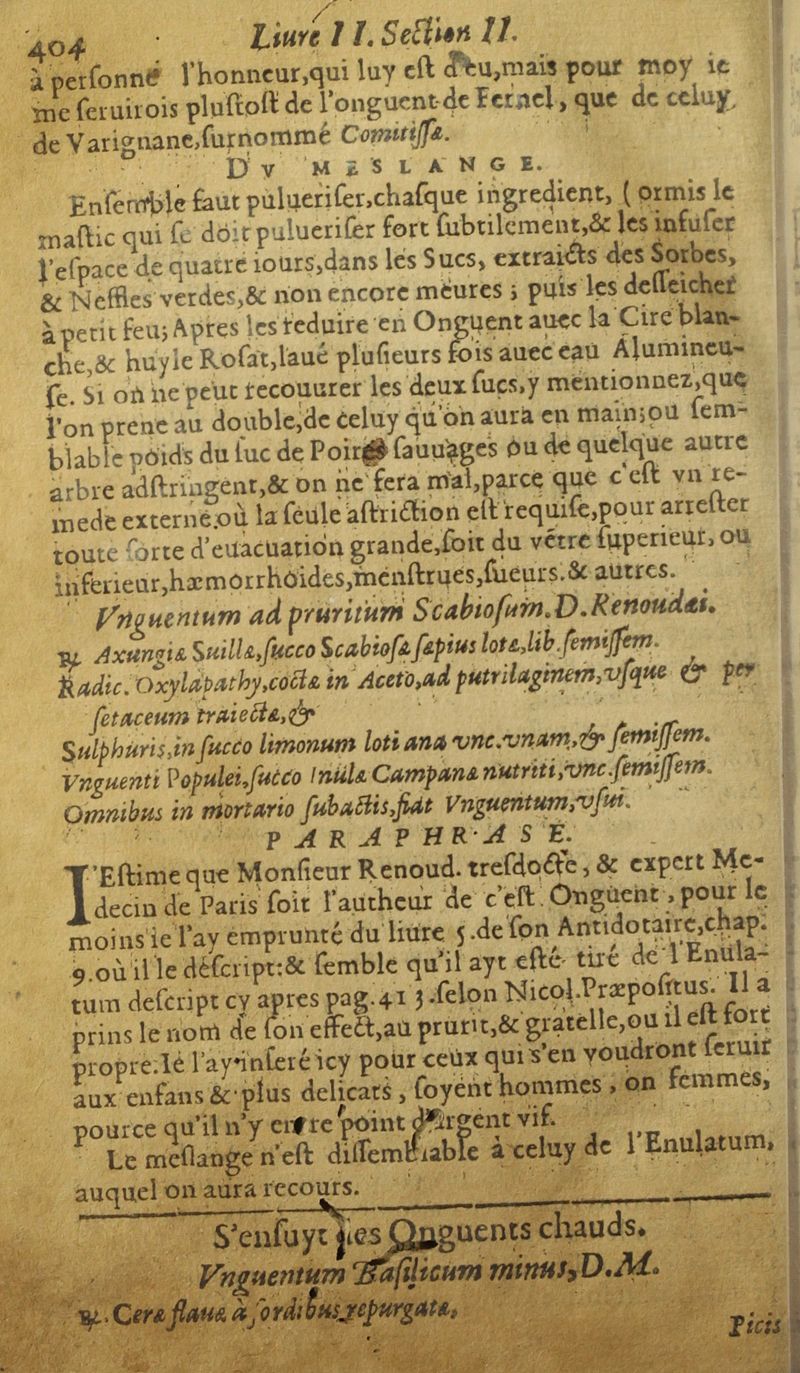 404 Liure II. Section II.
à personné l'honneur,qui luy est deu,mais pour moy ie
me seruirois plustost de l'onguent de Fernel, que de celuy,
de Varignane,surnommé Comitissæ.
DV MESLANGE.
Ensemble faut puluerifer,chasque ingredient, (ormis le
mastic qui se doit pulueriser fort subtilement,& les infuser
l'espace de quatre iours,dans les Sucs, extraicts des Sorbes,
& Neffles verdes,& non encore meures ; puis les desseicher
à petit feu; Apres les reduire en Onguent auec la Cire blan-
che,& huyle Rosat,laué plusieurs fois auec eau Alumineu-
se. Si on ne peut recouurer les deux sucs,y mentionnez,que
l'on prene au double,de celuy qu'on aura en main;ou sem-
blable poids du suc de Poires sauuages ou de quelque autre
arbre adstringent,& on ne fera mal,parce que c'est vn re-
mede externe,où la seule astriction est requise,pour arrester
toute sorte d'euacuation grande,soit du vétre superieur, ou
inferieur,hæmorrhoides,menstrues,sueurs.& autres.
Vnguentum ad pruritum Scabiosum.D.Renoudæi.
℞ Axungiæ Suillæ,succo Scabiosæ sæpius lotæ,lib.semissem.
Radic. Oxylapathy,coctæ in Aceto,ad putrilaginem,vsque & per
setaceum traiectæ,&
Sulphuris,in succo limonum loti ana vnc.vnam,& semissem.
Vnguenti Populei,succo Inulæ Campanæ nutriti,vnc.semissem.
Omnibus in mortario subactis,fiat Vnguentum,vsui.
PARAPHRASE.
I'Estime que Monsieur Renoud. tresdocte, & expert Me-
decin de Paris soit l'autheur de c'est Onguent, pour le
moins ie l'ay emprunté du liure 5.de son Antidotaire,chap.
9.où il le descript:& semble qu'il ayt esté tiré de l'Enula-
tum descript cy apres pag.413.selon Nicol.Præpositus. Il a
prins le nom de son effect,au prurit,& gratelle,ou il est fort
propre:Ie l'ay inseré icy pour ceux qui s'en voudront seruir
aux enfans & plus delicats, soyent hommes, on femmes,
pource qu'il n'y entre point d'argent vif.
Le meslange n'est dissemblable à celuy de l'Enulatum,
auquel on aura recours.
S'ensuyt les Onguents chauds.
Vnguentum Basilicum minus,D.M.
℞. Ceræ flauæ à sordibus repurgatæ,
Picis